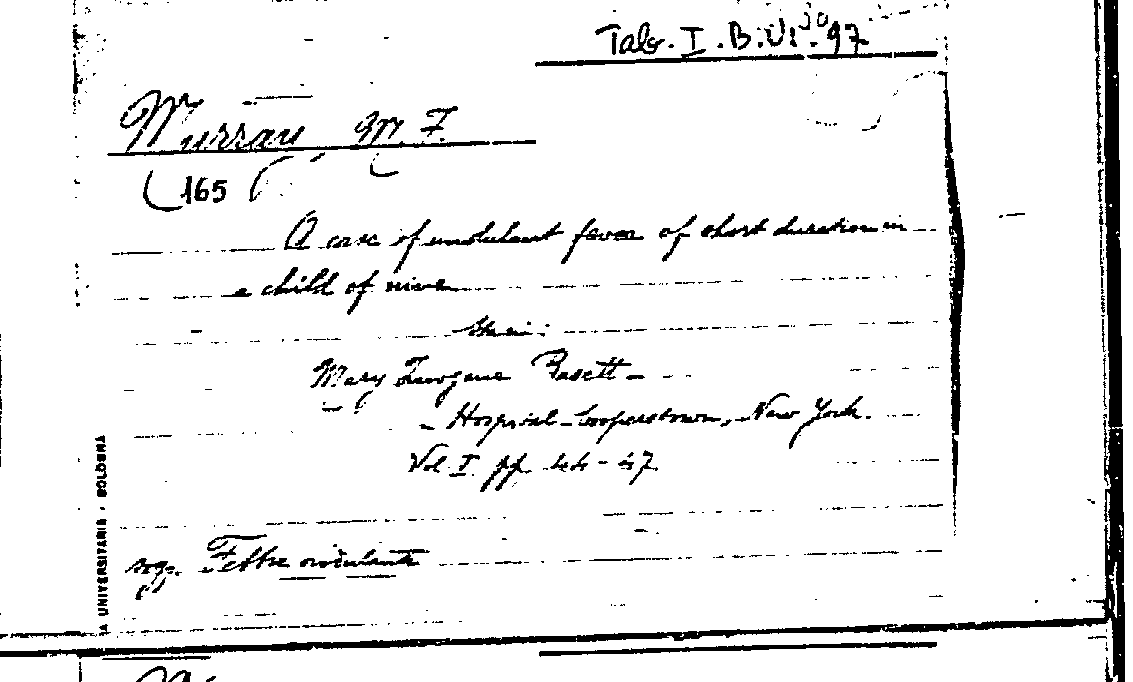 Tab. I. B. VI. 30 97
Murray, M. F.
(165)
A case of undulant fever of short duration in
a child of nine
Mary Imogene Bassett -
- Hospital - Cooperstown, New York.
Vol I. pp. 44-47
sogg. Febbre ondulante
A UNIVERSITARIA - BOLOGNA